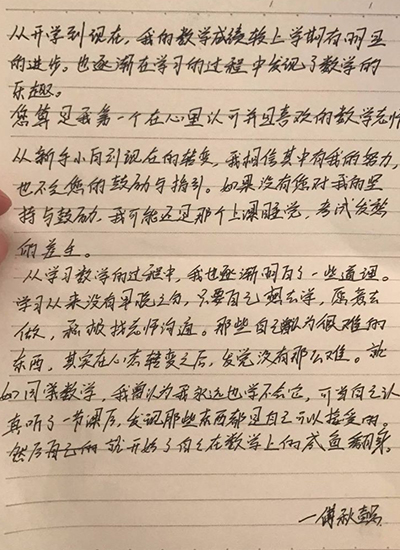 从开学到现在，我的数学成绩较上学期有明显
的进步。也逐渐在学习的过程中发现了数学的
乐趣。
您算是我第一个在心里认可并且喜欢的数学老师
从新手小白到现在的转变，我相信其中有我的努力，
也不乏您的鼓励与指引。如果没有您对我的坚
持与鼓励，我可能还是那个上课睡觉，考试发愁
的差生。
从学习数学的过程中，我也逐渐明白了一些道理。
学习从来没有早晚之分，只要自己想去学，愿意去
做，积极找老师沟通。那些自己认为很难的
东西，其实在心态转变之后，发觉没有那么难。就
如同学数学，我曾认为我永远也学不会它，可当自己认
真听了一节课后，发现那些东西都是自己可以接受的。
然后自己的就开始了自己在数学上的咸鱼翻身。
一傅秋